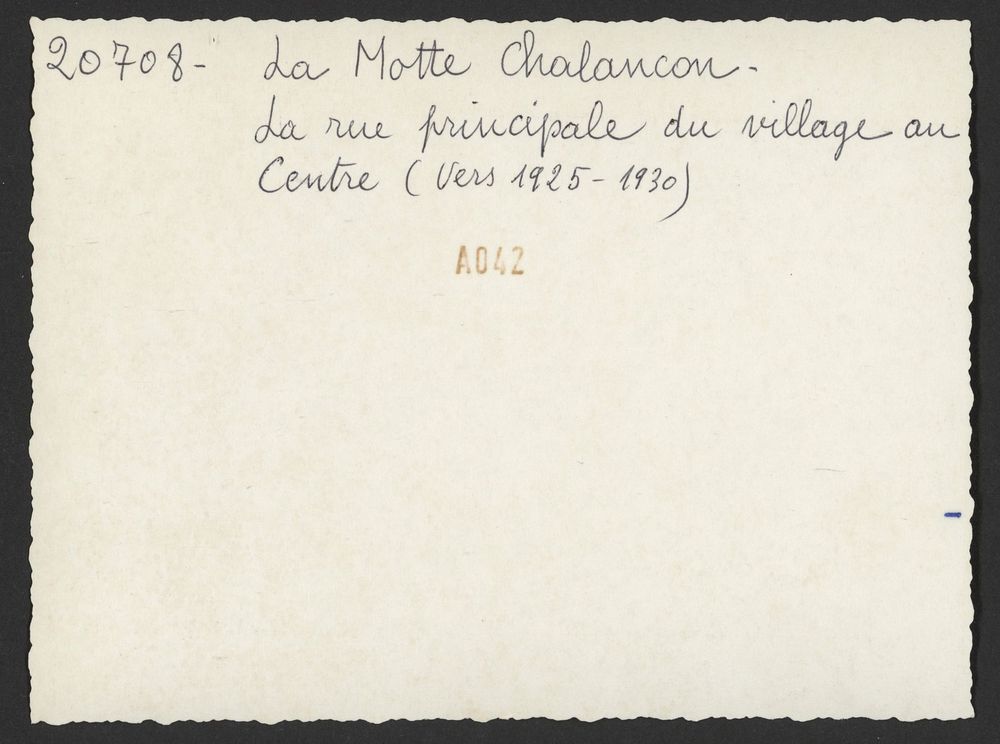 20708- La Motte Chalancon.
La rue principale du village au
Centre (Vers 1925-1930)
A042